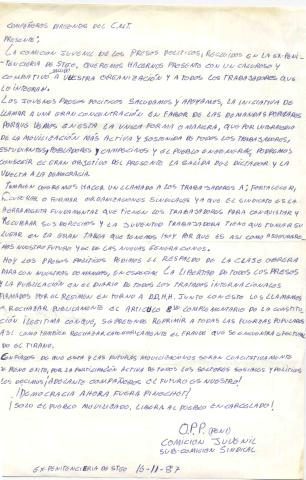 COMPAÑEROS DIRIGENTES DEL C.N.T.
PRESENTE:
LA COMISION JUVENIL DE LOS PRESOS POLITICOS, RECLUIDOS EN LA EX-PENI-
TENCIERIA DE STGO, QUEREMOS HACERNOS PRESENTE CON UN CALUROSO Y
COMBATIVO SALUDO A VUESTRA ORGANIZACIÓN Y A TODOS LOS TRABAJADORES QUE
LO INTEGRAN.
LOS JOVENES PRESOS POLITICOS SALUDAMOS Y APOYAMOS, LA INICIATIVA DE
LLAMAR A UNA GRAN CONCENTRACIÓN EN FABOR DE LAS DEMANDAS POPULARES
PORQUE VEMOS EN ESTA LA UNICA FORMA O MANERA, QUE POR INTERMEDIO
DE LA MOVILIZACIÓN MAS ACTIVA Y SOSTENIDA DE TODOS LOS TRABAJADORES,
ESTUDIANTES, POBLADORES Y CAMPECINOS Y EL PUEBLO EN GENERAL, PODREMOS
CONSEGUIR EL GRAN OBJETIVO DEL PRESENTE LA SALIDA DEL DICTADOR Y LA
VUELTA A LA DEMOCRACIA.
TAMBIEN QUEREMOS HACER UN LLAMADO A LOS TRABAJADORES A; FORTALECER,
O FORMAR ORGANIZACIONES SINDICALES YA QUE EL SINDICATO ES LA
HERRAMIENTA FUNDAMENTAL QUE TIENEN LOS TRABAJADORES PARA CONQUISTAR Y
RECOBRAR SUS DERECHOS Y LA JUVENTUD TRABAJADORA TIENE QUE TOMAR SU
LUGAR EN LA GRAN TAREA QUE TENEMOS HOY POR QUE ES ASI COMO ASEGURARE-
MOS NUESTRO FUTURO Y DE LAS NUEVAS GENERACIONES.
HOY LOS PRESOS POLITICOS PEDIMOS EL RESPALDO DE LA CLASE OBRERA
PARA CON NUESTRAS DEMANDAS, EN ESPECIAL LA LIBERTAD DE TODOS LOS PRESOS
Y LA PUBLICACIÓN EN EL DIARIO DE TODOS LOS TRATADOS INTERNACIONALES
FIRMADOS POR EL REGIMEN EN TORNO A DD.HH. JUNTO CON ESTO LOS LLAMAMOS
A RECHAZAR PUBLICAMENTE EL ARTICULO 8vo DE LA CONSTITU-
CIÓN ILEGITIMA CON QUE, SE PRETENDE REPRIMIR A TODAS LAS FUERZAS POPULARES
ASI COMO TAMBIEN RECHAZAR CATEGORICAMENTE EL FRAUDE QUE SE ENCUENTRA EFECTUAN-
DO EL TIRANO.
DE QUE ESTA Y LAS FUTURAS MOVILIZACIONES SERAN
DE PLENO EXITO, POR LA PARTICIPACIÓN ACTIVA DE TODOS LOS SECTORES SOCIALES Y POLITICOS
LOS DECIMOS ¡ADELANTE COMPAÑEROS EL FUTURO ES NUESTRO!
¡DEMOCRACIA AHORA FUERA PINOCHET!
¡SOLO EL PUEBLO MOVILIZADO, LIBERA AL PUEBLO ENCARCELADO!
O.P.P. (PENI)
COMISION JUVENIL
SUB-COMISION SINDICAL
EX-PENITENCIERIA DE STGO 16-11-87